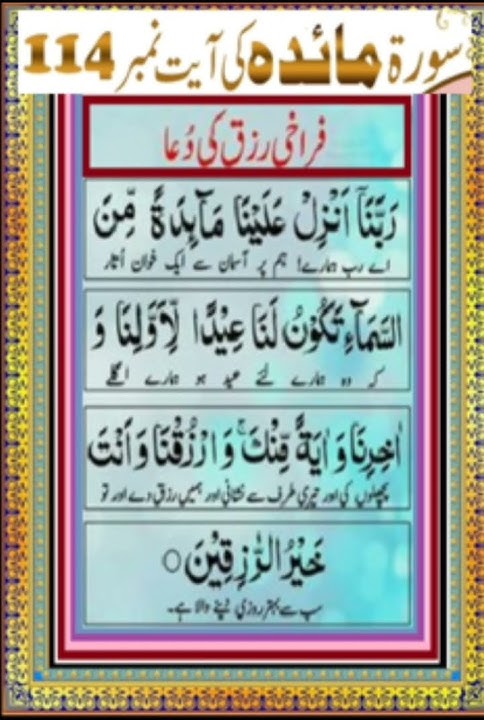 سورۃ مائدہ کی آیت نمبر 114
فراخی رزق کی دُعا
رَبَّنَاۤ اَنْزِلْ عَلَیْنَا مَآىِٕدَةً مِّنَ
اے رب ہمارے! ہم پر آسمان سے ایک خوان اُتار
السَّمَآءِ تَكُوْنُ لَنَا عِیْدًا لِّاَوَّلِنَا وَ
کہ وہ ہمارے لئے عید ہو ہمارے اگلے
اٰخِرِنَا وَ اٰیَةً مِّنْكَ ۚ وَ ارْزُقْنَا وَ اَنْتَ
پچھلوں کی اور تیری طرف سے نشانی اور ہمیں رزق دے اور تو
خَیْرُ الرّٰزِقِیْنَ ○
سب سے بہتر روزی دینے والا ہے۔